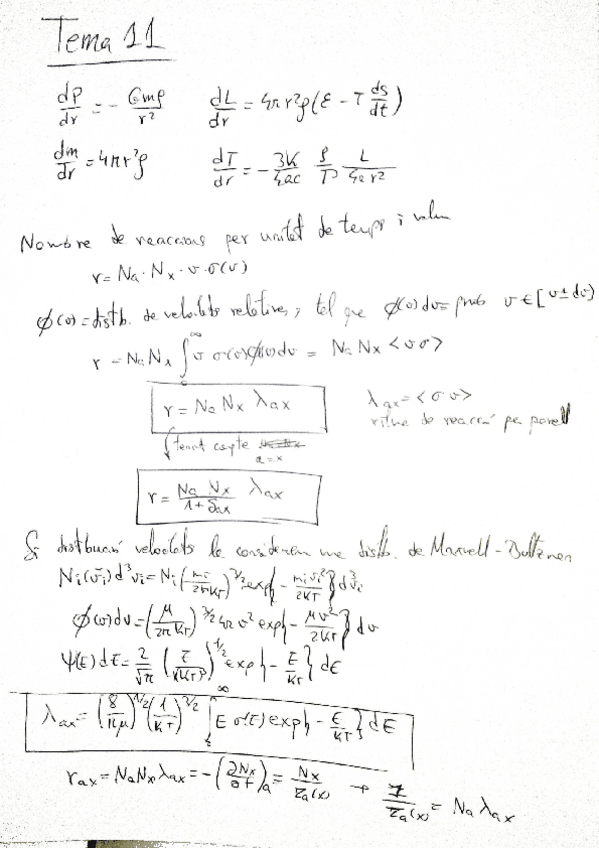 Tema 11
dP/dr = - Gmρ/r²    dL/dr = 4πr²ρ(ε - T ds/dt)
dm/dr = 4πr²ρ    dT/dr = - 3K/4ac ρ/T³ L/4πr²
Nombre de reaccions per unitat de temps i volum
r = Na · Nx · v · σ(v)
φ(v) = distb. de velocitats relatives, tal que φ(v)dv = prob v ∈ [v ± dv]
r = Na Nx ∫₀^∞ v σ(v) φ(v) dv = Na Nx <vσ>
r = Na Nx λax    λax = <σv>
ritme de reacció per parell
tenint compte
a = x
r = Na Nx/1+δax λax
Si distbució velocitats la considerem una distb. de Maxwell-Boltzman
Ni(vi) d³vi = Ni (mi/2πKT)^3/2 exp{- mi vi²/2KT} d³vi
φ(v)dv = (μ/2πKT)^3/2 4π v² exp{- μv²/2KT} dv
Ψ(E)dE = 2/√π (E/(KT)³)^1/2 exp{- E/KT} dE
λax = (8/πμ)^1/2 (1/KT)^3/2 ∫₀^∞ E σ(E) exp{- E/KT} dE
rax = Na Nx λax = -(∂Nx/∂t)a = Nx/τa(x) → 1/τa(x) = Na λax